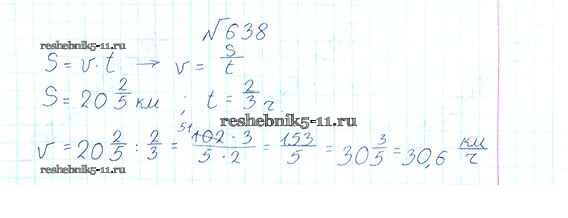 №638
reshebnik5-11.ru
S = v · t → v = S/t
S = 20 2/5 км ; t = 2/3 ч.
reshebnik5-11.ru
v = 20 2/5 : 2/3 = 51 102 · 3 / 5 · 2 = 153/5 = 30 3/5 = 30,6 км/ч
reshebnik5-11.ru